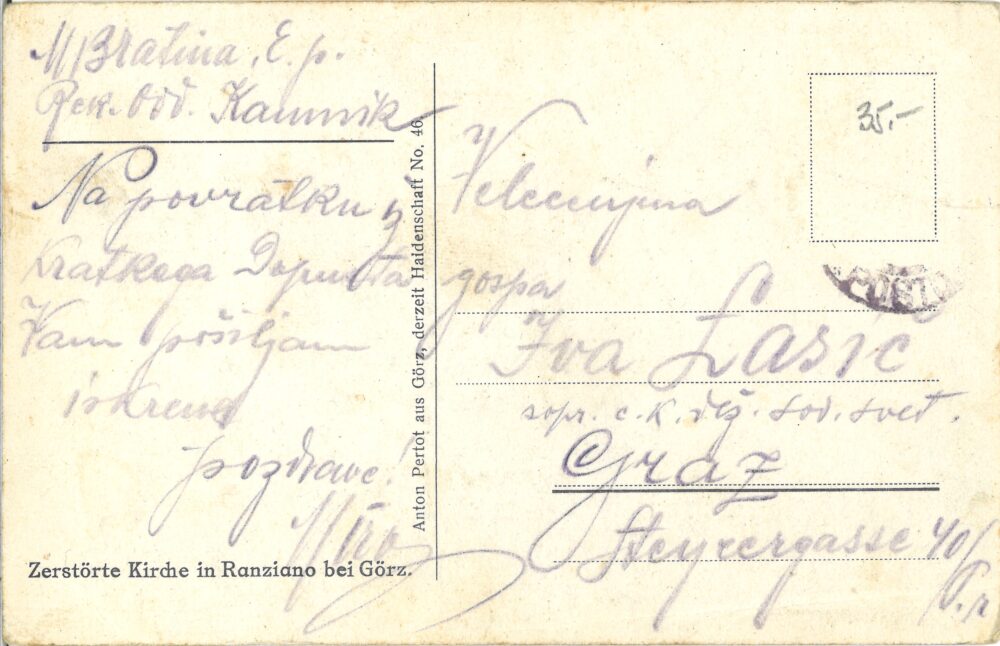 M Bratina, E. p.
Rek. Odd. Kamnik
Na povratku z
Kratkega Dopusta
Vam pošiljam
iskrene
pozdrave!
Miro
Zerstörte Kirche in Ranziano bei Görz.
Anton Pertot aus Görz, derzeit Haidenschaft No. 46.
35.-
Velecenjena
gospa
Iva Lasic
sopr. c. k. dež. sod. svet.
Graz
Steyrergasse 40/